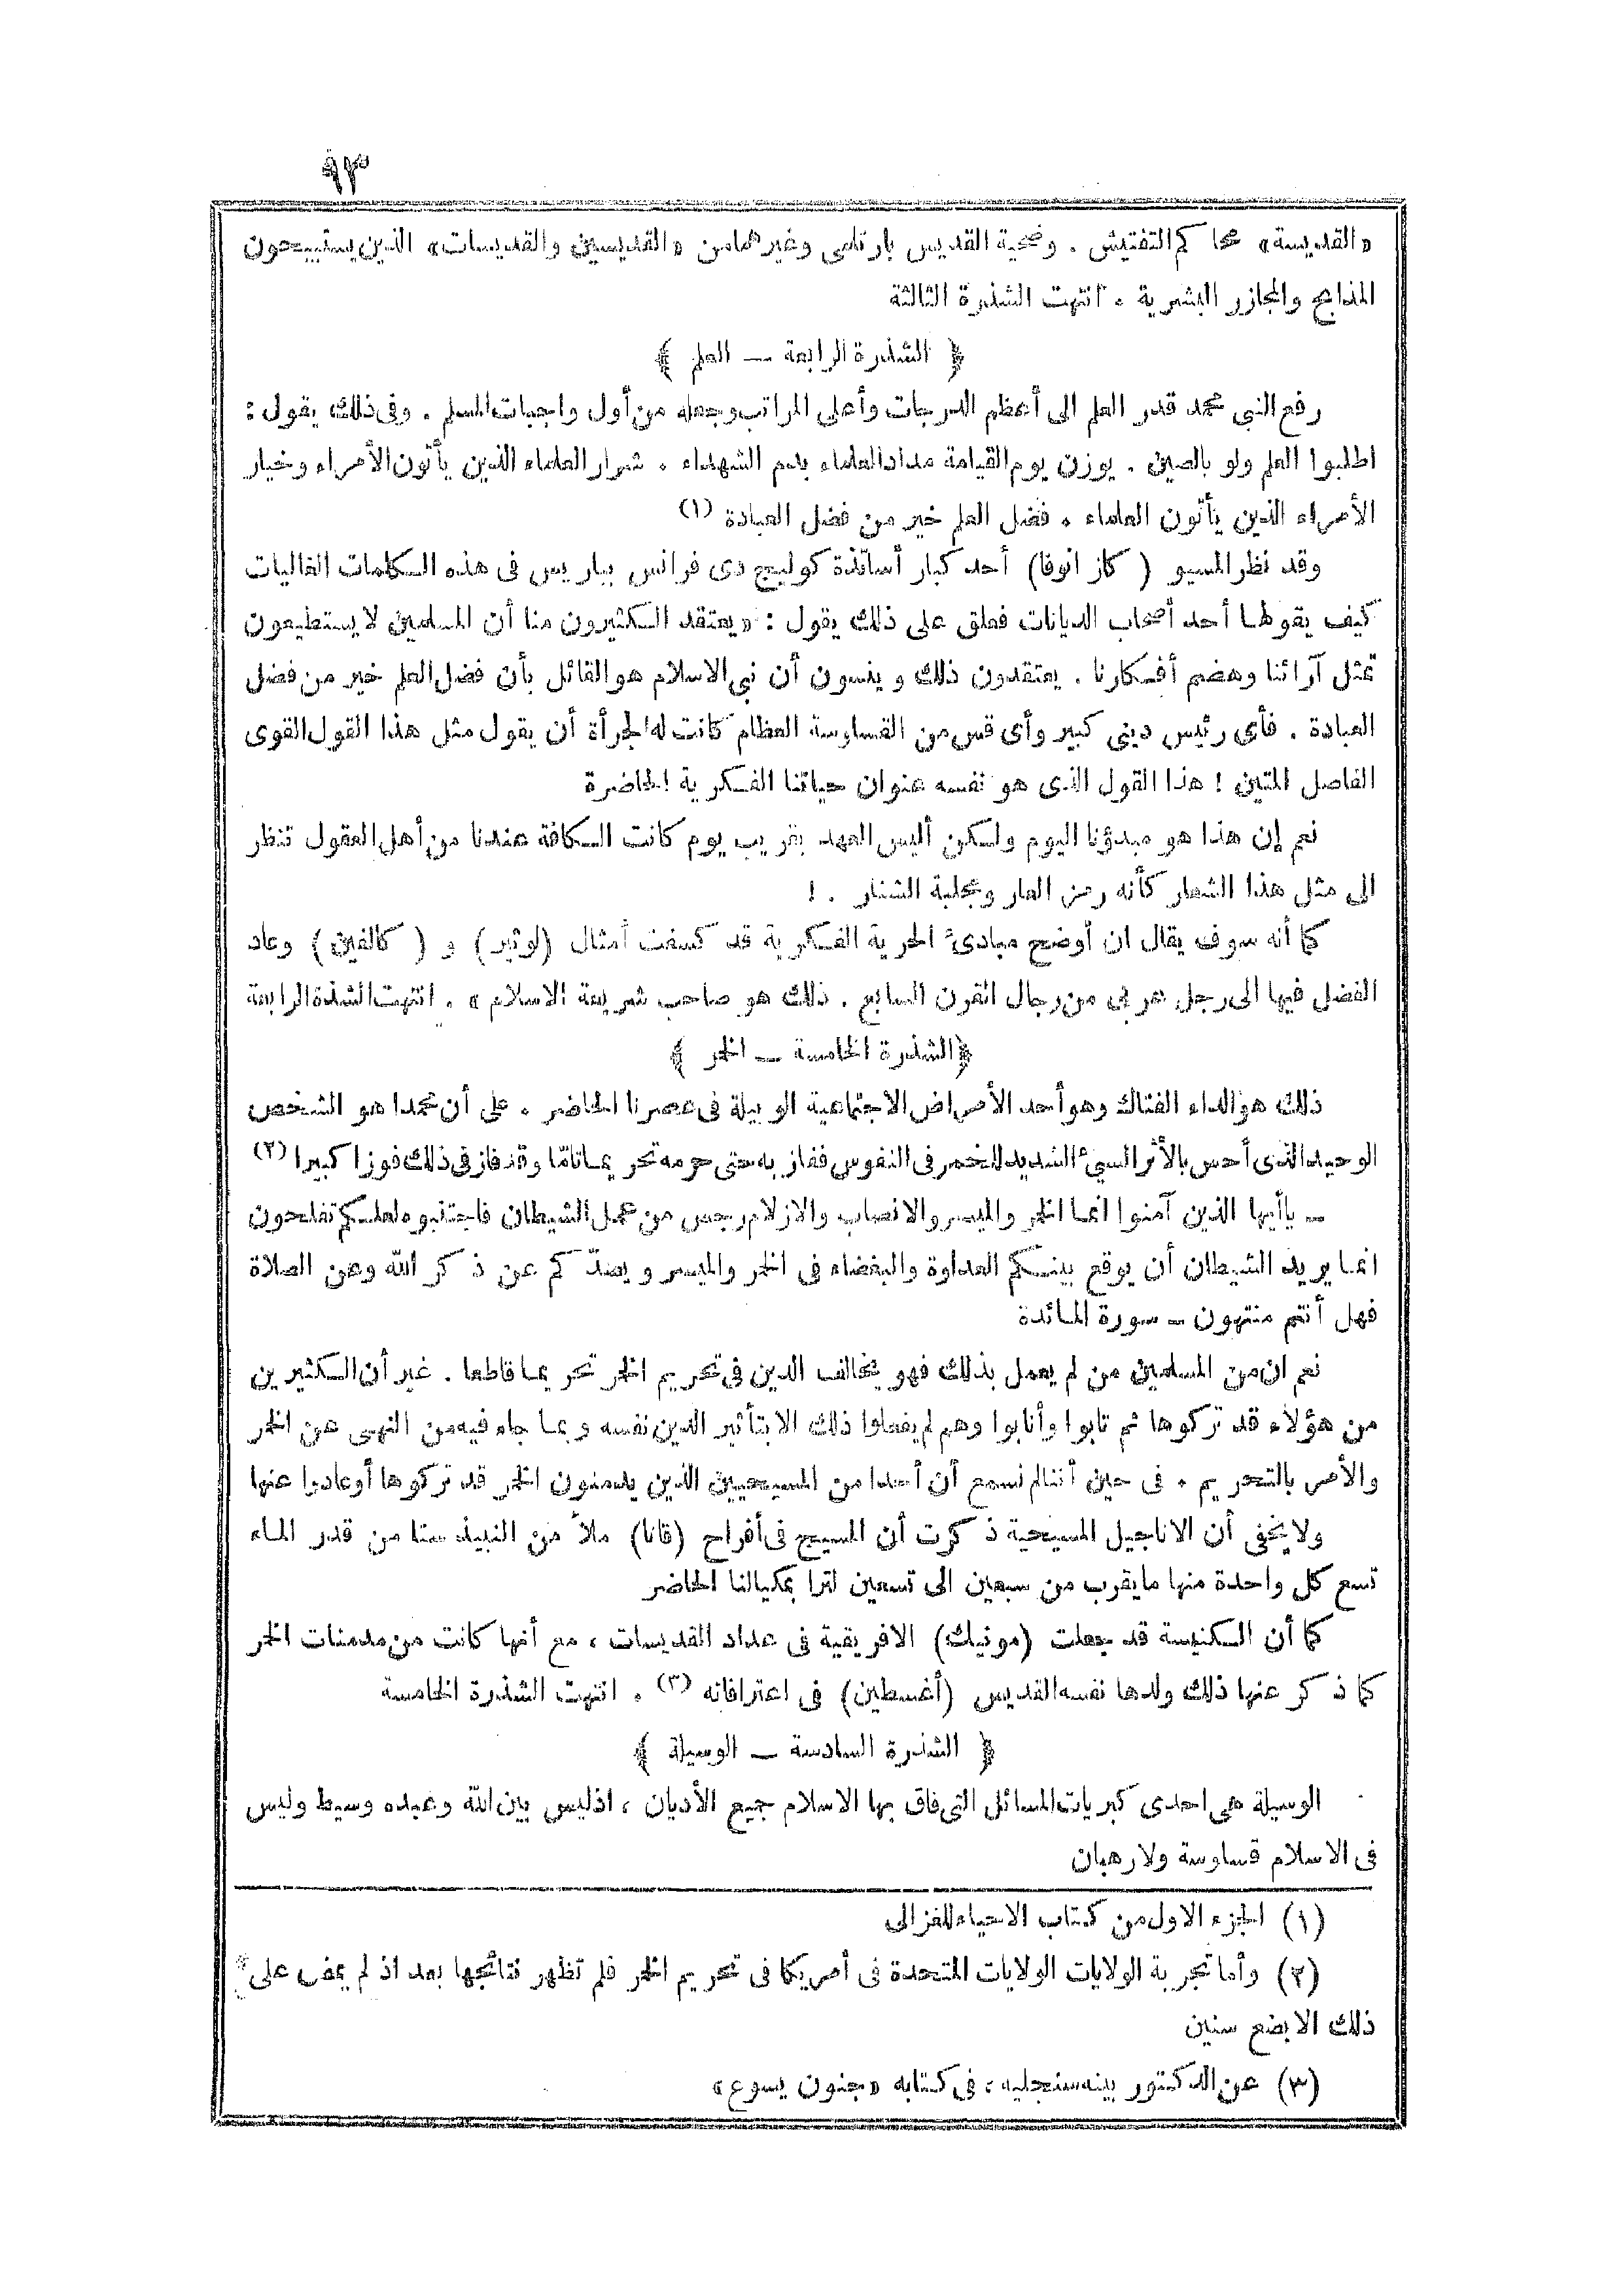 ٩٣
«القديسة» محاكم التفتيش . وضحية القديس بارتلمى وغيرهما من «القديسين والقديسات» الذين يستبيحون
المذابح والمجازر البشرية . انتهت الشذرة الثالثة
﴿ الشذرة الرابعة — العلم ﴾
رفع النبى محمد قدر العلم الى أعظم الدرجات وأعلى المراتب وجعله من أول واجبات المسلم . وفى ذلك يقول :
اطلبوا العلم ولو بالصين . يوزن يوم القيامة مداد العلماء بدم الشهداء . شرار العلماء الذين يأتون الأمراء وخيار
الأمراء الذين يأتون العلماء . فضل العلم خير من فضل العبادة (١)
وقد نظر المسيو ( كازانوفا) أحد كبار أساتذة كوليج دى فرانس بباريس فى هذه الكلمات الغاليات
كيف يقولها أحد أصحاب الديانات فعلق على ذلك يقول : «يعتقد الكثيرون منا أن المسلمين لا يستطيعون
تمثل آرائنا وهضم أفكارنا . يعتقدون ذلك وينسون أن نبى الاسلام هو القائل بأن فضل العلم خير من فضل
العبادة . فأى رئيس دينى كبير وأى قس من القساوسة العظام كانت له الجرأة أن يقول مثل هذا القول القوى
الفاصل المتين ! هذا القول الذى هو نفسه عنوان حياتنا الفكرية الحاضرة
نعم إن هذا هو مبدؤنا اليوم ولكن أليس العهد بقريب يوم كانت الكافة عندنا من أهل العقول تنظر
الى مثل هذا الشعار كأنه رمز العار ومجلبة الشنار . !
كما أنه سوف يقال ان أوضح مبادئ الحرية الفكرية قد كسفت أمثال (لوثير) و ( كالفين) وعاد
الفضل فيها الى رجل عربى من رجال القرن السابع . ذلك هو صاحب شريعة الاسلام » . انتهت الشذة الرابعة
﴿ الشذرة الخامسة — الخمر ﴾
ذلك هو الداء الفتاك وهو أحد الأمراض الاجتماعية الوبيلة فى عصرنا الحاضر . على أن محمدا هو الشخص
الوحيد الذى أحس بالأثر السيئ الشديد للخمر فى النفوس ففاز به حتى حرمه تحريما تامّا وقد فاز فى ذلك فوزا كبيرا (٢)
– ياأيها الذين آمنوا انما الخمر والميسر والانصاب والازلام رجس من عمل الشيطان فاجتنبوه لعلكم تفلحون
انما يريد الشيطان أن يوقع بينكم العداوة والبغضاء فى الخمر والميسر ويصدّكم عن ذكر الله وعن الصلاة
فهل أنتم منتهون – سورة المائدة
نعم ان من المسلمين من لم يعمل بذلك فهو يخالف الدين فى تحريم الخمر تحريما قاطعا . غير أن الكثيرين
من هؤلاء قد تركوها ثم تابوا وأنابوا وهم لم يفعلوا ذلك الا بتأثير الدين نفسه وبما جاء فيه من النهى عن الخمر
والأمر بالتحريم . فى حين أننا لم نسمع أن أحدا من المسيحيين الذين يدمنون الخمر قد تركوها أو عادوا عنها
ولا يخفى أن الاناجيل المسيحية ذكرت أن المسيح فى أفراح (قانا) ملأ من النبيذ ستا من قدر الماء
تسع كل واحدة منها مايقرب من سبعين الى تسعين لترا بمكيالنا الحاضر
كما أن الكنيسة قد جعلت (مونيك) الافريقية فى عداد القديسات ، مع أنها كانت من مدمنات الخمر
كما ذكر عنها ذلك ولدها نفسه القديس (أغسطين) فى اعترافاته (٣) . انتهت الشذرة الخامسة
﴿ الشذرة السادسة — الوسيلة ﴾
الوسيلة هى احدى كبريات المسائل التى فاق بها الاسلام جميع الأديان ، اذ ليس بين الله وعبده وسيط وليس
فى الاسلام قساوسة ولا رهبان
(١) الجزء الاول من كتاب الاحياء للغزالى
(٢) وأما تجربة الولايات الولايات المتحدة فى أمريكا فى تحريم الخمر فلم تظهر نتائجها بعد اذ لم يمض على
ذلك الا بضع سنين
(٣) عن الدكتور بينه سنجليه ، فى كتابه «جنون يسوع»